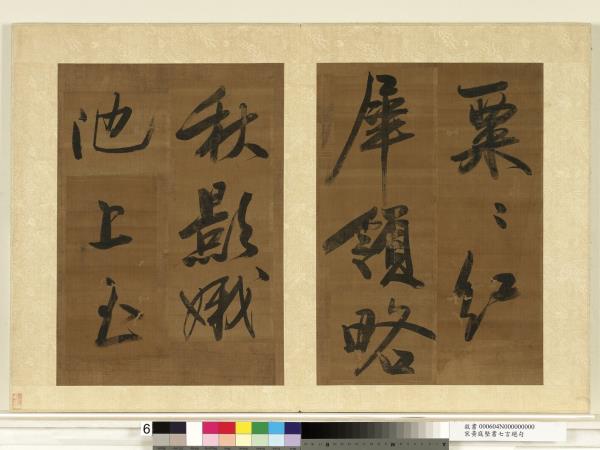 粟〻紅
犀領略
秋影娥
池上玉
6
故書 000604N000000000
宋黃庭堅書七言絕句